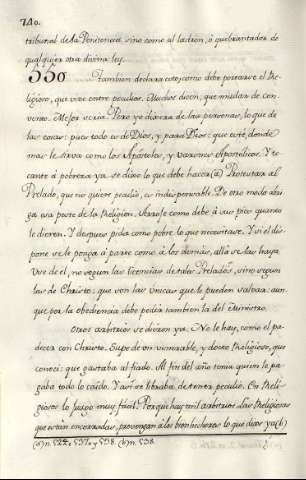 740.
tribunal de la Penitencia, sino como al ladron, ò quebrantador de
qualquier otra divina ley.
330 Tambien declara esto, como debe portarse el Re-
ligioso, que vive entre peculios. Muchos dicen, que mudar de con-
vento. Mejor seria. Pero yo diera de las personas, lo que de
las cosas: pues todo es de Dios, y para Dios: que esté, donde
mas le sirva como los Apóstoles, y Varones Apostólicos. Y to
cante à pobreza ya se dixo lo que debe hacer (a) Protestar al
Prelado, que no quiere peculio, es indispensable. De otro modo abri
ga esa peste de la Religion. Use lo como debe à uso pio quando
le dieren. Y despues pida como pobre lo que necesitare. Y si el dis
pone se le ponga à parte como à los demàs, allá se las haya.
Use de el, no segun las licencias de tales Prelados, sino segun
las de Christo: que son las unicas que le pueden salvar: aun
que por la obediencia debe pedir tambien la del Ministro.
Otros arbitrios se dieran ya. No le hay, como el pa-
decer con Christo. Supe de un venerable, y docto Religioso, que
conocí: que gastaba al fiado. Al fin del año tenia quien le pa
gaba todo lo caido. Y asi se libraba de tener peculio. En Reli
giosos lo juzgo muy fácil. Porque hay mil arbitrios. Las Religiosas
que estàn encerradas, provengan à los bienhechores lo que dixe ya (b)
(a) n. 524, 537, y 538. (b) n. 538.